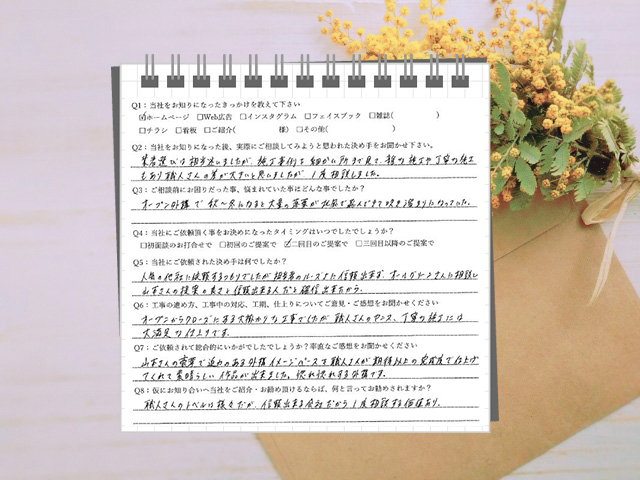 Q1：当社をお知りになったきっかけを教えて下さい
☑ホームページ　□Web広告　□インスタグラム　□フェイスブック　□雑誌(　　　　　)
□チラシ　□看板　□ご紹介(　　　　　様)　□その他(　　　　　　　)
Q2：当社をお知りになった後、実際にご相談してみようと思われた決め手をお聞かせ下さい。
業者選びは相当迷いましたが、施工事例を細かい所まで見て、
もあり職人さんの業が大きいと思いましたが、1度相談しました。
Q3：ご相談前にお困りだった事、悩まれていた事はどんな事でしたか？
オープン外構で秋〜冬になると大量の落葉が
Q4：当社にご依頼頂く事をお決めになったタイミングはいつでしたでしょうか？
□初面談のお打合せで　□初回のご提案で　☑二回目のご提案で　□三回目以降のご提案で
Q5：当社に依頼された決め手は何でしたか？
依頼するつもりでしたが担当者のルーズさに信頼出来ず、
山本さんの提案の良さと信頼出来る人だと確信出来たから。
Q6：工事の進め方、工事中の対応、工期、仕上りについてご意見・ご感想をお聞かせください
オープンからクローズにする大掛かりな工事でしたが、職人さんのセンス、丁寧な施工には
大満足な仕上りです。
Q7：ご依頼されて総合的にいかがでしたでしょうか？率直なご感想をお聞かせください
山本さんの提案で迫力のある外構イメージパースを職人さんが期待以上の完成度で仕上げ
てくれて素晴らしい作品が出来ました。惚れ惚れする外構です。
Q8：仮にお知り合いへ当社をご紹介・お勧め頂けるならば、何と言ってお勧めされますか？
職人さんのレベルは様々だが、信頼出来る会社だから1度相談する価値あり。